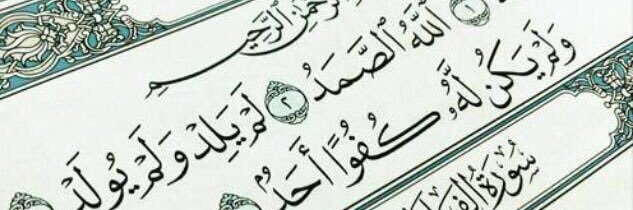 الرَّحْمَٰنِ الرَّحِيمِ
١ ٱللَّهُ ٱلصَّمَدُ ٢ لَمْ يَلِدْ وَلَمْ يُولَدْ
وَلَمْ يَكُن لَّهُۥ كُفُوًا أَحَدٌۢ
سُورَةُ